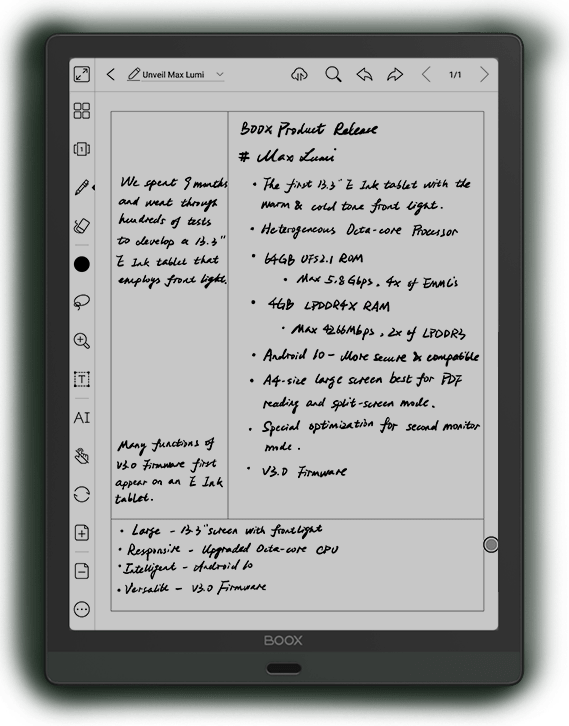 Unveil Max Lumi
1/1
1
T
AI
We spent 9 months
and went through
hundreds of tests
to develop a 13.3"
E Ink tablet that
employs front light.
Many functions of
V3.0 Firmware first
appear on an E Ink
tablet.
BOOX Product Release
# Max Lumi
• The first 13.3" E Ink tablet with the
warm & cold tone front light.
• Heterogeneous Octa-core Processor
• 64GB UFS2.1 ROM
• Max 5.8Gbps, 4x of EMMC5
• 4GB LPDDR4X RAM
• Max 4266Mbps, 2x of LPDDR3
• Android 10 - More secure & compatible
• A4-size large screen best for PDF
reading and split-screen mode.
• Special optimization for second monitor
mode.
• V3.0 Firmware
• Large - 13.3" screen with frontlight
• Responsive - Upgraded Octa-core CPU
• Intelligent - Android 10
• Versatile - V3.0 Firmware
BOOX